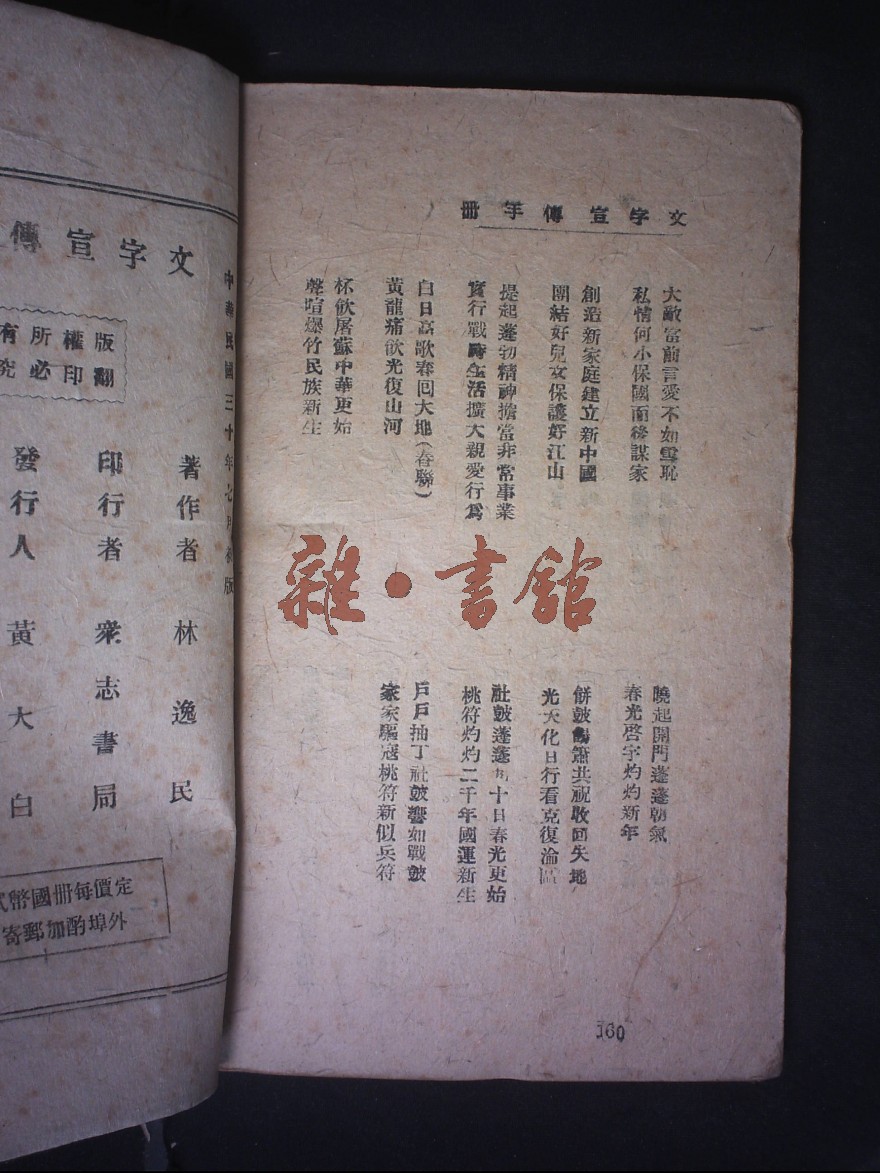 文字宣傳手冊
大敵當前言愛不如雪恥
私情何小保國而後謀家
創造新家庭建立新中國
團結好兒女保護好江山
提起蓬勃精神擔當非常事業
實行戰時生活擴大親愛行為
白日高歌春回大地(春聯)
黃龍痛飲光復山河
杯飲屠蘇中華更始
聲喧爆竹民族新生
曉起開門蓬蓬朝氣
春光啓宇灼灼新年
餅鼓餳簫共祝收回失地
光天化日行看克復淪區
社鼓蓬蓬 十日春光更始
桃符灼灼二千年國運新生
戶戶抽丁社鼓響如戰鼓
家家驅寇桃符新似兵符
160
雜·書館
中華民國三十年七月初版
文字宣傳
版權所有
翻印必究
著作者 林逸民
印行者 衆志書局
發行人 黃大白
定價每冊國幣
外埠酌加郵寄